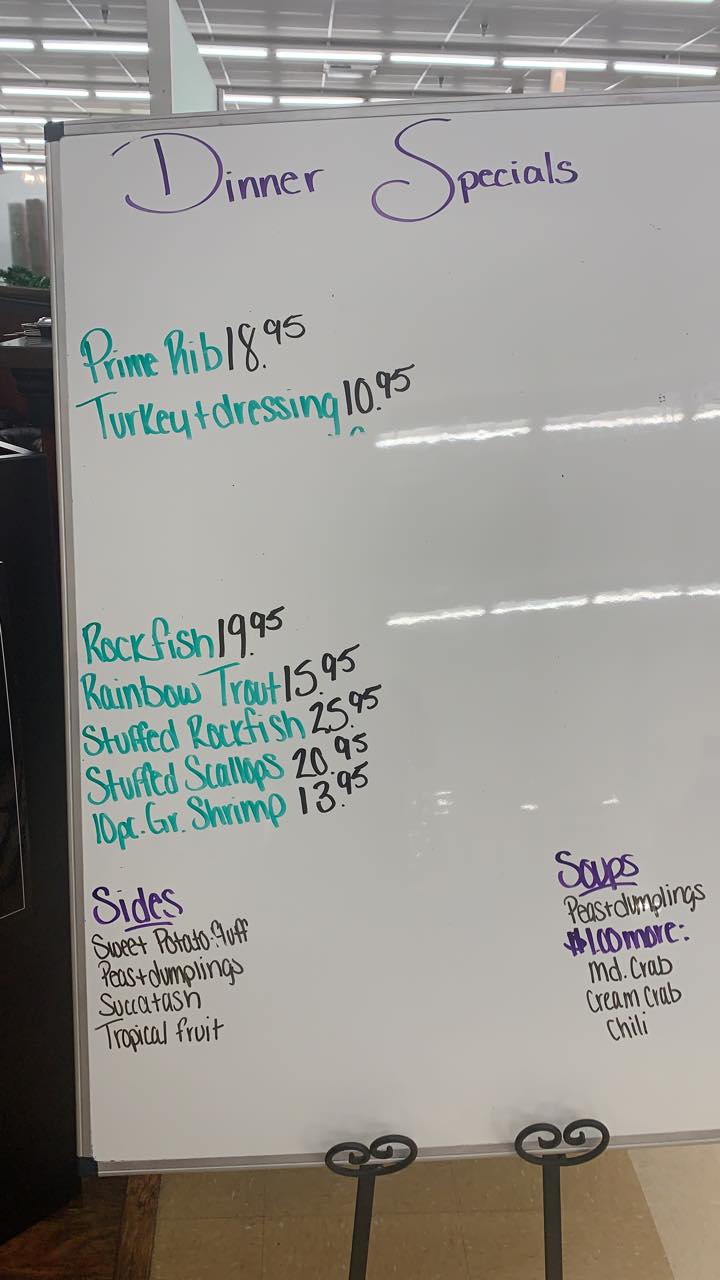 Dinner Specials
Prime Rib 18.95
Turkey + dressing 10.95
Rockfish 19.95
Rainbow Trout 15.95
Stuffed Rockfish 25.95
Stuffed Scallops 20.95
10pc. Gr. Shrimp 13.95
Sides
Sweet Potato fluff
Peas + dumplings
Succatash
Tropical fruit
Soups
Peas + dumplings
$1.00 more:
Md. Crab
Cream Crab
Chili